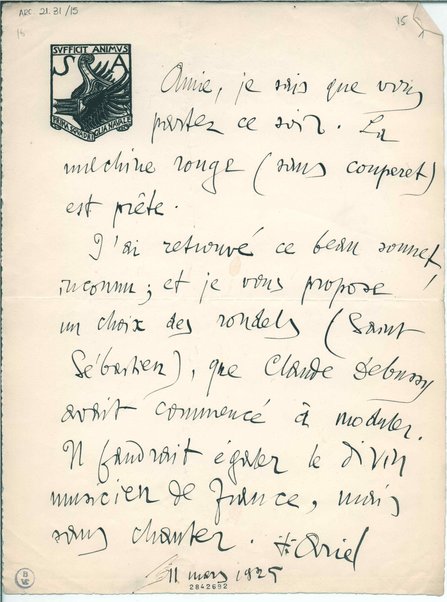 ARC. 21.31/15
15
15
SVFFICIT ANIMVS
S A
PRIMA SQVADRIGLIA NAVALE
Amie, je sais que vous
partez ce soir. La
machine rouge (sans couperet)
est prête.
J'ai retrouvé ce beau sonnet
inconnu; et je vous propose
un choix des rondels (Saint
Sébastien), que Claude Debussy
avait commencé à moduler.
Il faudrait égaler le divin
musicien de France, mais
sans chanter. Ariel
11 mars 1925
2842692